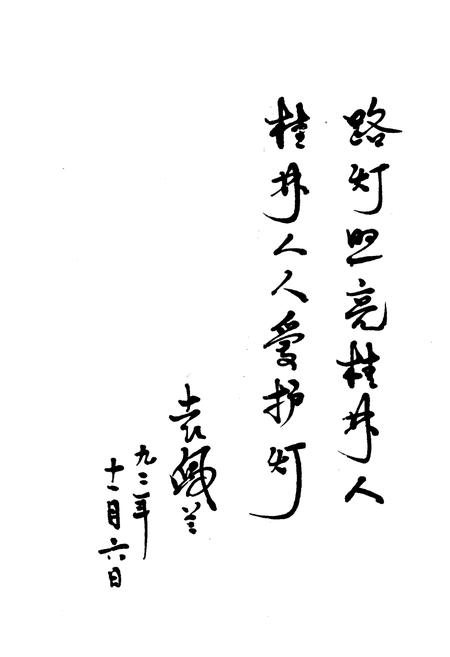 路灯照亮桂林人
桂林人人爱护灯
袁鳳兰
九三年
十一月六日